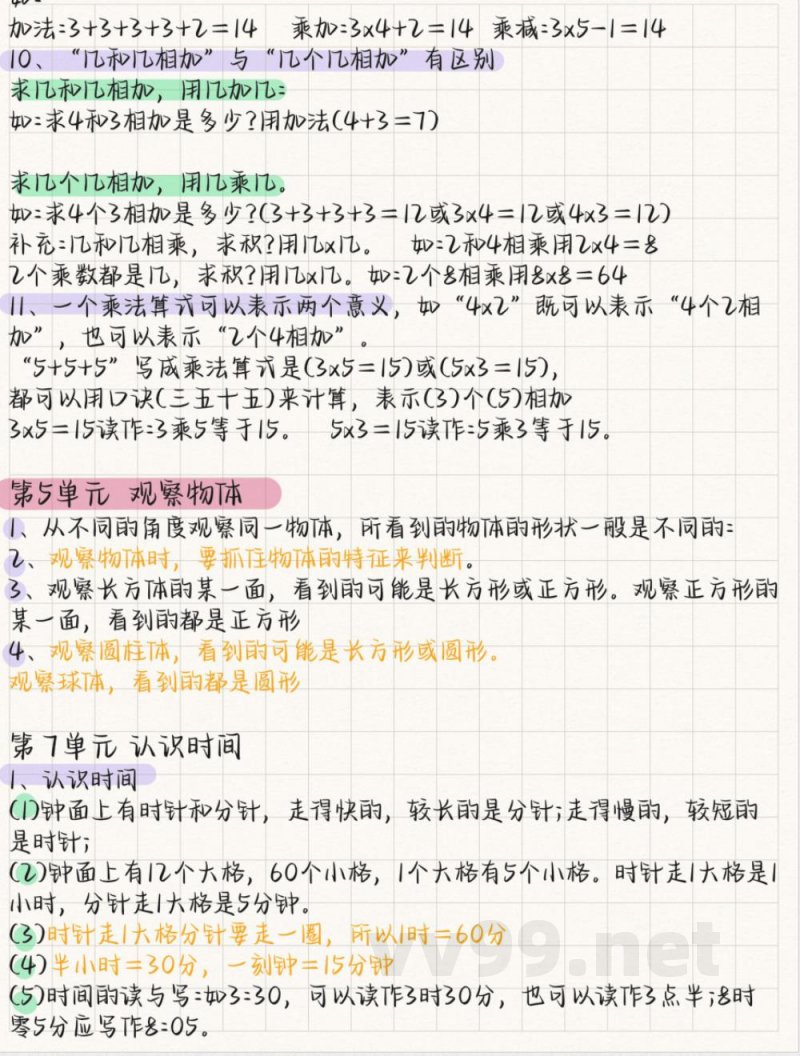 加法:3+3+3+3+2=14 乘加:3x4+2=14 乘减:3x5-1=14
10、“几和几相加”与“几个几相加”有区别
求几和几相加，用几加几:
如:求4和3相加是多少?用加法(4+3=7)
求几个几相加，用几乘几。
如:求4个3相加是多少?(3+3+3+3=12或3x4=12或4x3=12)
补充:几和几相乘，求积?用几x几。 如:2和4相乘用2x4=8
2个乘数都是几，求积?用几x几。如:2个8相乘用8x8=64
11、一个乘法算式可以表示两个意义，如“4x2”既可以表示“4个2相
加”，也可以表示“2个4相加”。
“5+5+5”写成乘法算式是(3x5=15)或(5x3=15),
都可以用口诀(三五十五)来计算，表示(3)个(5)相加
3x5=15读作:3乘5等于15。 5x3=15读作:5乘3等于15。
第5单元 观察物体
1、从不同的角度观察同一物体，所看到的物体的形状一般是不同的:
2、观察物体时，要抓住物体的特征来判断。
3、观察长方体的某一面，看到的可能是长方形或正方形。观察正方形的
某一面，看到的都是正方形
4、观察圆柱体，看到的可能是长方形或圆形。
观察球体，看到的都是圆形
第7单元 认识时间
1、认识时间
(1)钟面上有时针和分针，走得快的，较长的是分针;走得慢的，较短的
是时针;
(2)钟面上有12个大格，60个小格，1个大格有5个小格。时针走1大格是1
小时，分针走1大格是5分钟。
(3)时针走1大格分针要走一圈，所以1时=60分
(4)半小时=30分，一刻钟=15分钟
(5)时间的读与写:如3:30，可以读作3时30分，也可以读作3点半;8时
零5分应写作8:05。
vv99.net